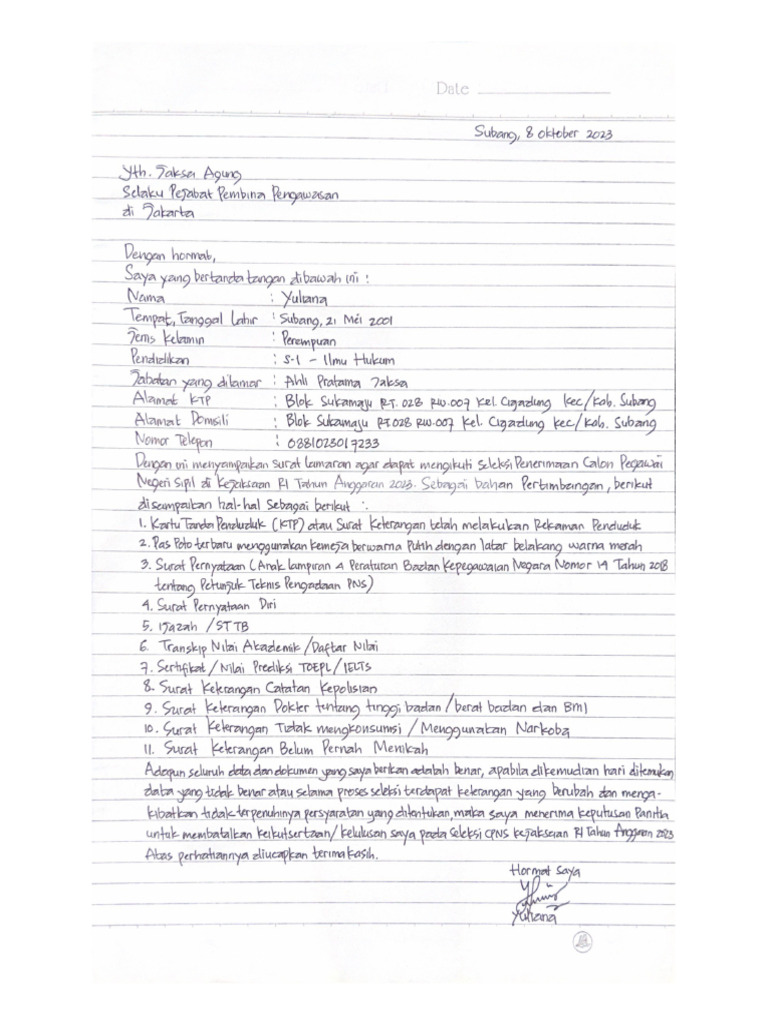 Date
Subang, 8 Oktober 2023
Yth. Jaksa Agung
Selaku Pejabat Pembina Pengawasan
di Jakarta
Dengan hormat,
Saya yang bertanda tangan dibawah ini :
Nama : Yuliana
Tempat, Tanggal Lahir : Subang, 21 Mei 2001
Jenis Kelamin : Perempuan
Pendidikan : S-1 - Ilmu Hukum
Jabatan yang dilamar : Ahli Pratama Jaksa
Alamat KTP : Blok Sukamaju RT. 028 RW.007 Kel. Cigadung Kec/Kab. Subang
Alamat Domisili : Blok Sukamaju RT.028 RW.007 Kel. Cigadung Kec/Kab. Subang
Nomor Telepon : 0881023017233
Dengan ini menyampaikan surat lamaran agar dapat mengikuti seleksi Penerimaan Calon Pegawai
Negeri Sipil di Kejaksaan RI Tahun Anggaran 2023. Sebagai bahan Pertimbangan, berikut
disampaikan hal-hal sebagai berikut :
1. Kartu Tanda Penduduk (KTP) atau Surat Keterangan telah melakukan Rekaman Penduduk
2. Pas Poto terbaru menggunakan kemeja berwarna Putih dengan latar belakang warna merah
3. Surat Pernyataan (Anak lampiran 4 Peraturan Badan Kepegawaian Negara Nomor 14 Tahun 2018
tentang Petunjuk Teknis Pengadaan PNS)
4. Surat Pernyataan Diri
5. Ijazah / STTB
6. Transkip Nilai Akademik / Daftar Nilai
7. Sertifikat / Nilai Prediksi TOEPL / IELTS
8. Surat Keterangan Catatan Kepolisian
9. Surat Keterangan Dokter tentang tinggi badan / berat badan dan BMI
10. Surat Keterangan Tidak mengkonsumsi / Menggunakan Narkoba
11. Surat Keterangan Belum Pernah Menikah
Adapun seluruh data dan dokumen yang saya berikan adalah benar, apabila dikemudian hari ditemukan
data yang tidak benar atau selama proses seleksi terdapat keterangan yang berubah dan menga-
kibatkan tidak terpenuhinya persyaratan yang ditentukan, maka saya menerima keputusan Panitia
untuk membatalkan keikutsertaan / kelulusan saya pada seleksi CPNS Kejaksaan RI Tahun Anggaran 2023
Atas perhatiannya diucapkan terimakasih.
Hormat Saya
Yuliana